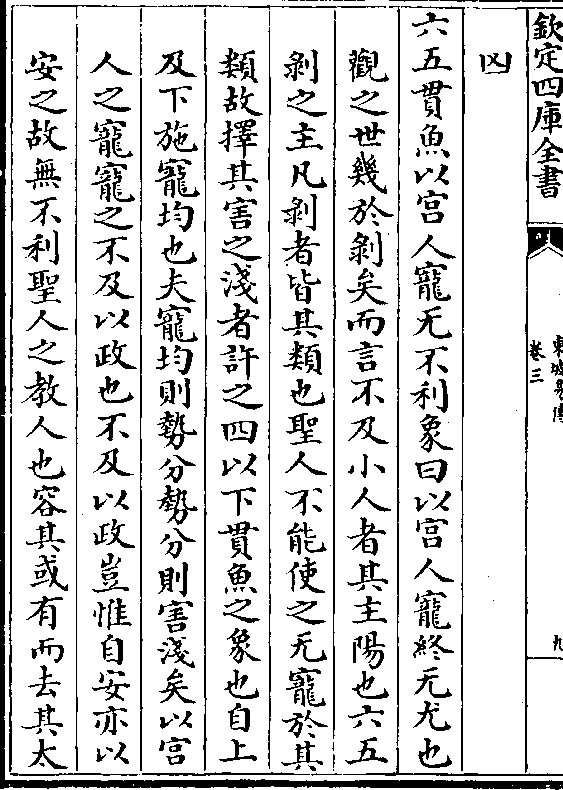 欽定四庫全書
東坡易傳
卷三
九
凶
六五貫魚以宫人寵无不利象曰以宫人寵終无尤也
觀之世幾於剝矣而言不及小人者其主陽也六五
剝之主凡剝者皆其類也聖人不能使之无寵於其
類故擇其害之淺者許之四以下貫魚之象也自上
及下施寵均也夫寵均則勢分勢分則害淺矣以宫
人之寵寵之不及以政也不及以政豈惟自安亦以
安之故無不利聖人之教人也容其或有而去其太